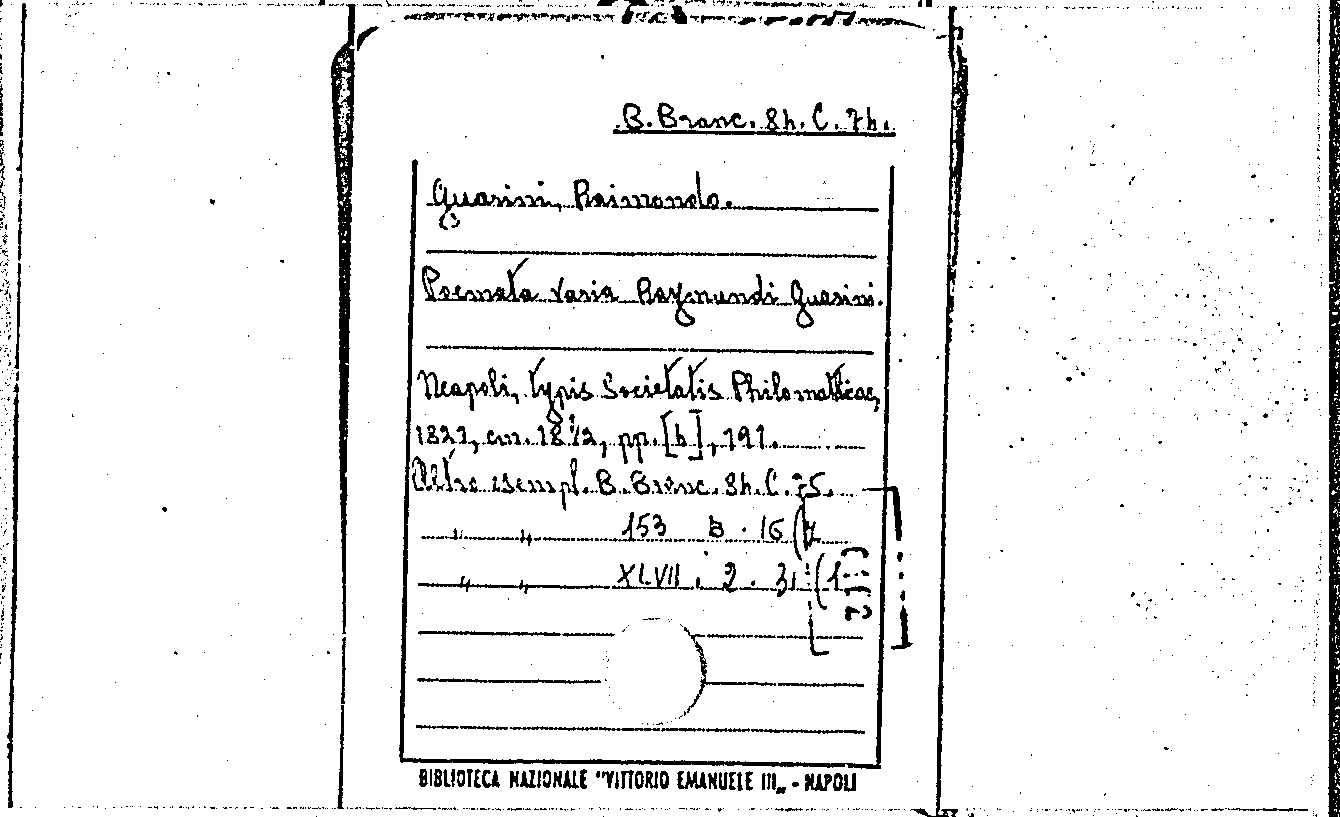 B. Branc. 8h. C. 7h.
Guarini, Raimondo.
Poemata varia Raymundi Guarini.
Neapoli, typis Societatis Philomathicae,
1821, cm. 18½, pp. [h], 191.
Altro esempl. B. Branc. 8h. C. 75.
" " 153 B. 16 (7
" " XLVII. 2. 31 (1
BIBLIOTECA NAZIONALE "VITTORIO EMANUELE III„ - NAPOLI